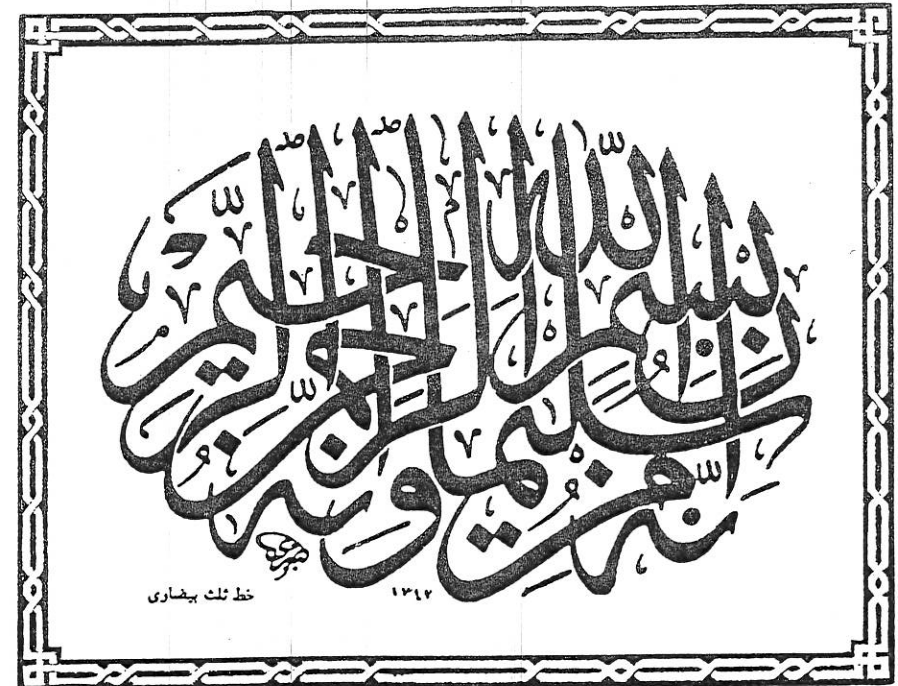 إنه من سليمان وإنه بسم الله الرحمن الرحيم
١٣٤٢
خط ثلث بيضاری